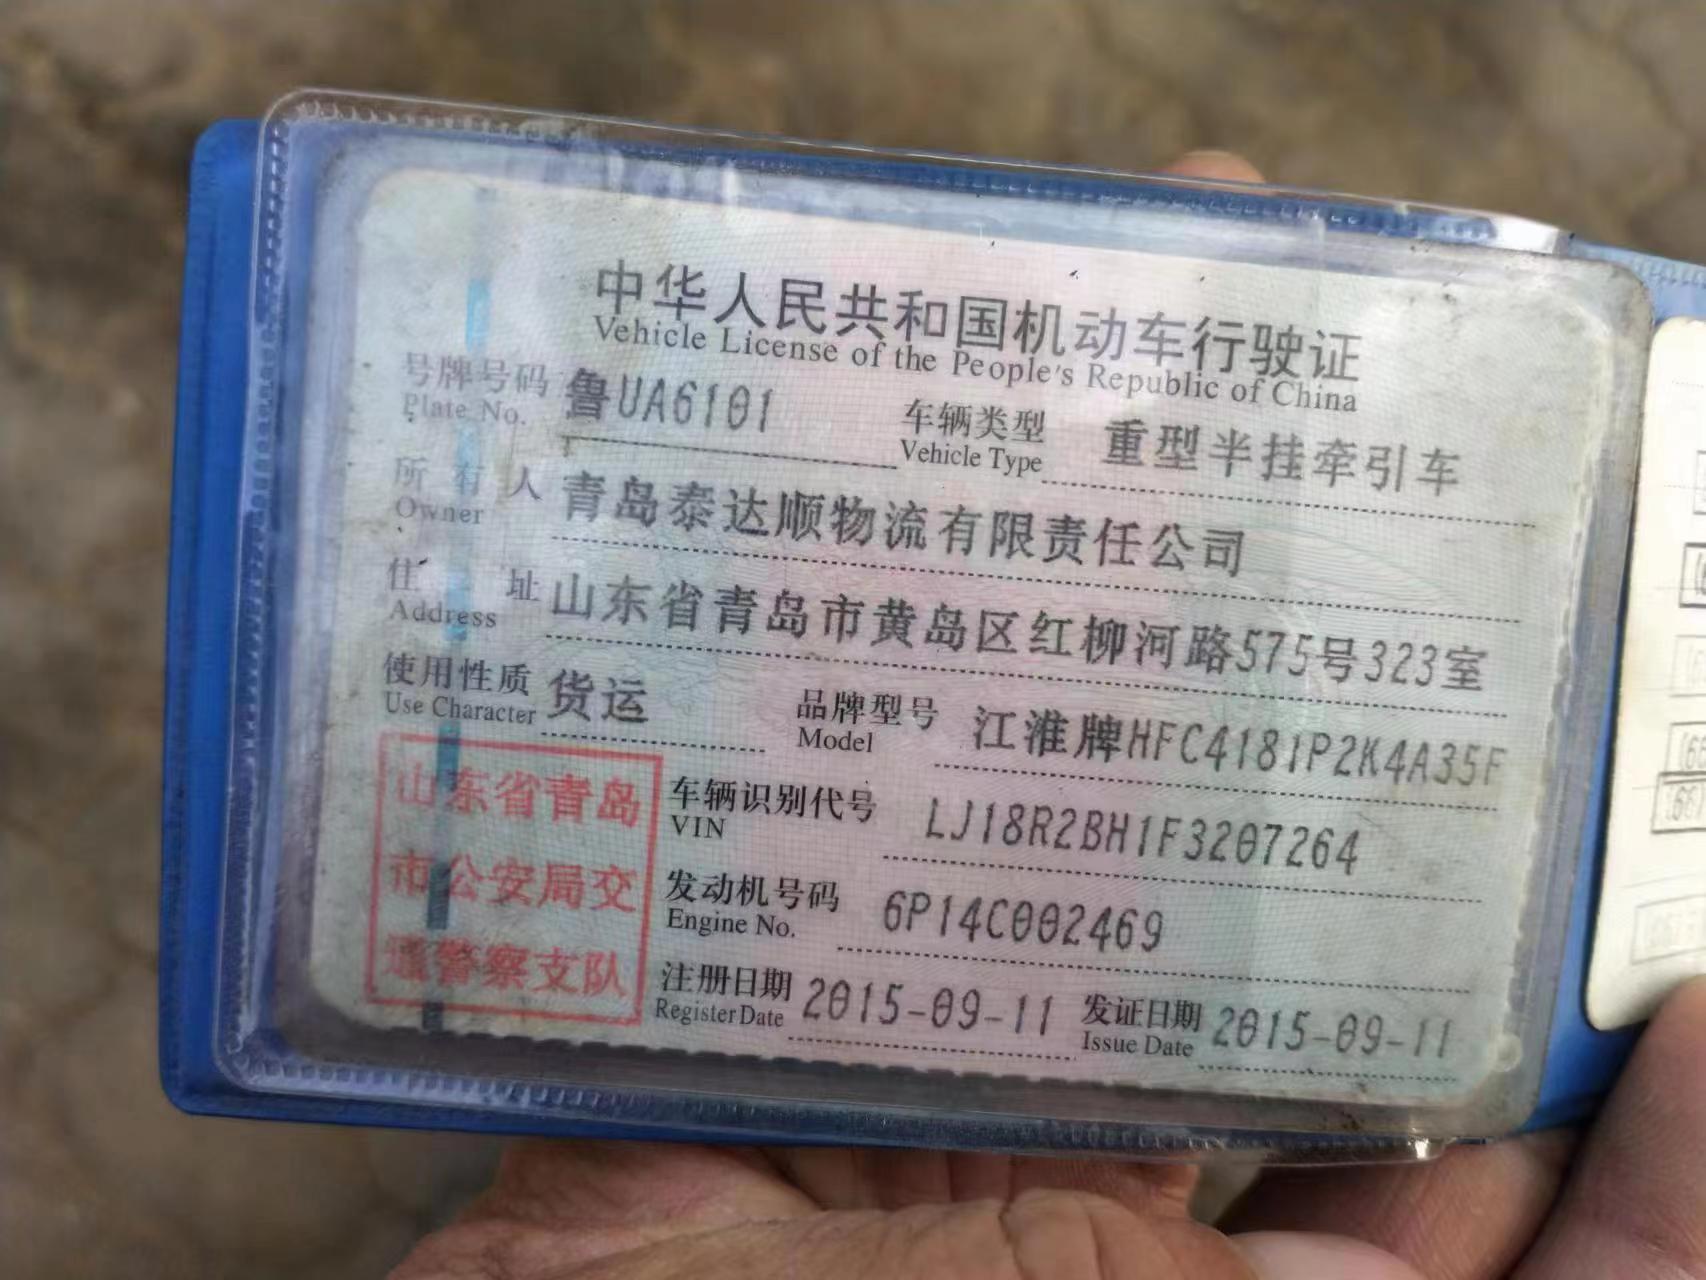 中华人民共和国机动车行驶证
Vehicle License of the People's Republic of China
号牌号码 鲁UA6101 车辆类型 重型半挂牵引车
Plate No. Vehicle Type
所有人 青岛泰达顺物流有限责任公司
Owner
住址 山东省青岛市黄岛区红柳河路575号323室
Address
使用性质 货运 品牌型号 江淮牌HFC4181P2K4A35F
Use Character Model
山东省青岛
市公安局交
通警察支队
车辆识别代号 LJ18R2BH1F3207264
VIN
发动机号码 6P14C002469
Engine No.
注册日期 2015-09-11 发证日期 2015-09-11
Register Date Issue Date